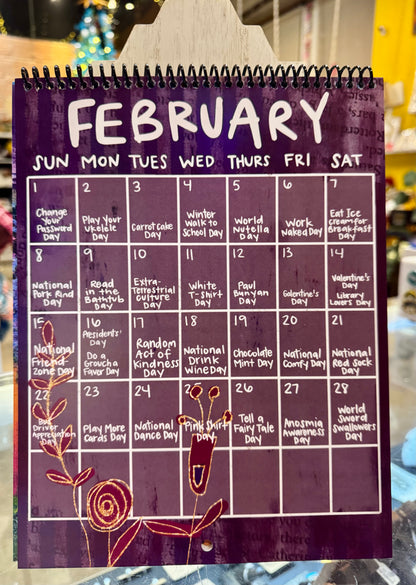 FEBRUARY
SUN MON TUES WED THURS FRI SAT
1 2 3 4 5 6 7
Change Your Password Day
Play Your Ukelele Day
Carrot Cake Day
Winter Walk to School Day
World Nutella Day
Work Naked Day
Eat Ice cream for Breakfast Day
8 9 10 11 12 13 14
National Pork Rind Day
Read in the Bathtub Day
Extra-Terrestrial Culture Day
White T-Shirt Day
Paul Bunyan Day
Galentine's Day
Valentine's Day
Library Lovers Day
15 16 17 18 19 20 21
National Friend-Zone Day
Presidents' Day
Do a Grouch a Favor Day
Random Act of Kindness Day
National Drink Wine Day
Chocolate Mint Day
National Comfy Day
National Red Sock Day
22 23 24 26 27 28
Driver Appreciation Day
Play More Cards Day
National Dance Day
Pink Shirt Day
Tell a Fairy Tale Day
Anosmia Awareness Day
World Sword Swallowers Day